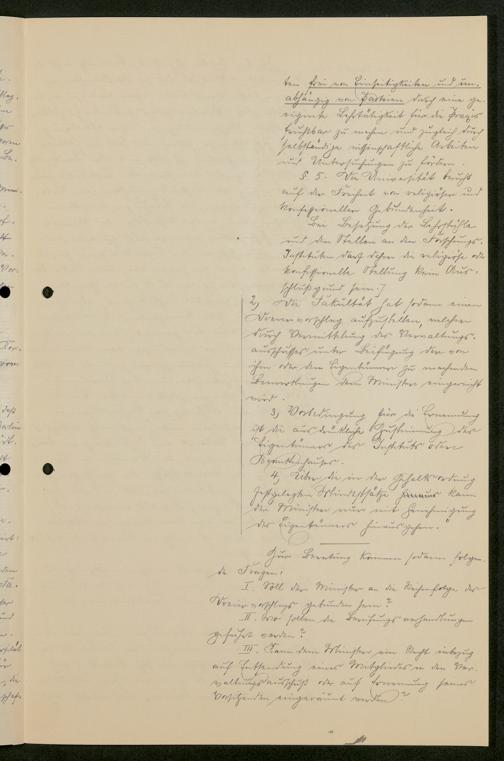 ten frei von Einseitigkeiten und un-
abhängig von Parteien durch eine ge-
eignete Lehrtätigkeit für die Praxis
fruchtbar zu machen und zugleich durch
selbständige wissenschaftliche Arbeiten
und Untersuchungen zu fördern.
§ 5. Die Universität beruht
auf der Freiheit von religiöser und
konfessioneller Gebundenheit.
Bei Besetzung der Lehrstühle
und der Stellen an den Forschungs-
Instituten darf daher die religiöse oder
konfessionelle Stellung kein Aus-
schlußgrund sein.]
2) Die Fakultät hat sodann einen
Dreiervorschlag aufzustellen, welcher
durch Vermittelung des Verwaltungs-
ausschusses unter Beifügung der von
ihm oder dem Eigentümer zu machenden
Bemerkungen dem Minister eingereicht
wird.
3) Vorbedingung für die Ernennung
ist die ausdrückliche Zustimmung des
Eigentümers des Instituts oder
Krankenhauses.
4) Über die in der Gehaltsordnung
festgelegten Mindestsätze hinaus kann
der Minister nur mit Genehmigung
des Eigentümers hinausgehen."
Zur Beratung kommen sodann folgen-
de Fragen:
I. Soll der Minister an die Reihenfolge des
Dreiervorschlags gebunden sein?
II. Wo sollen die Berufungsverhandlungen
geführt werden?
III. Kann dem Minister ein Recht inbezug
auf Entsendung eines Mitgliedes in den Ver-
waltungsausschuß oder auf Ernennung seines
Vorsitzenden eingeräumt werden?